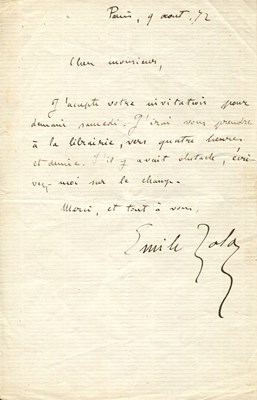 Paris, 9 aout. 72
Cher monsieur,
J'accepte votre invitation pour
demain samedi. J'irai vous prendre
à la librairie, vers quatre heures
et demie. S'il y avait obstacle, écri-
vez-moi sur le champ.
Merci, et tout à vous.
Emile Zola